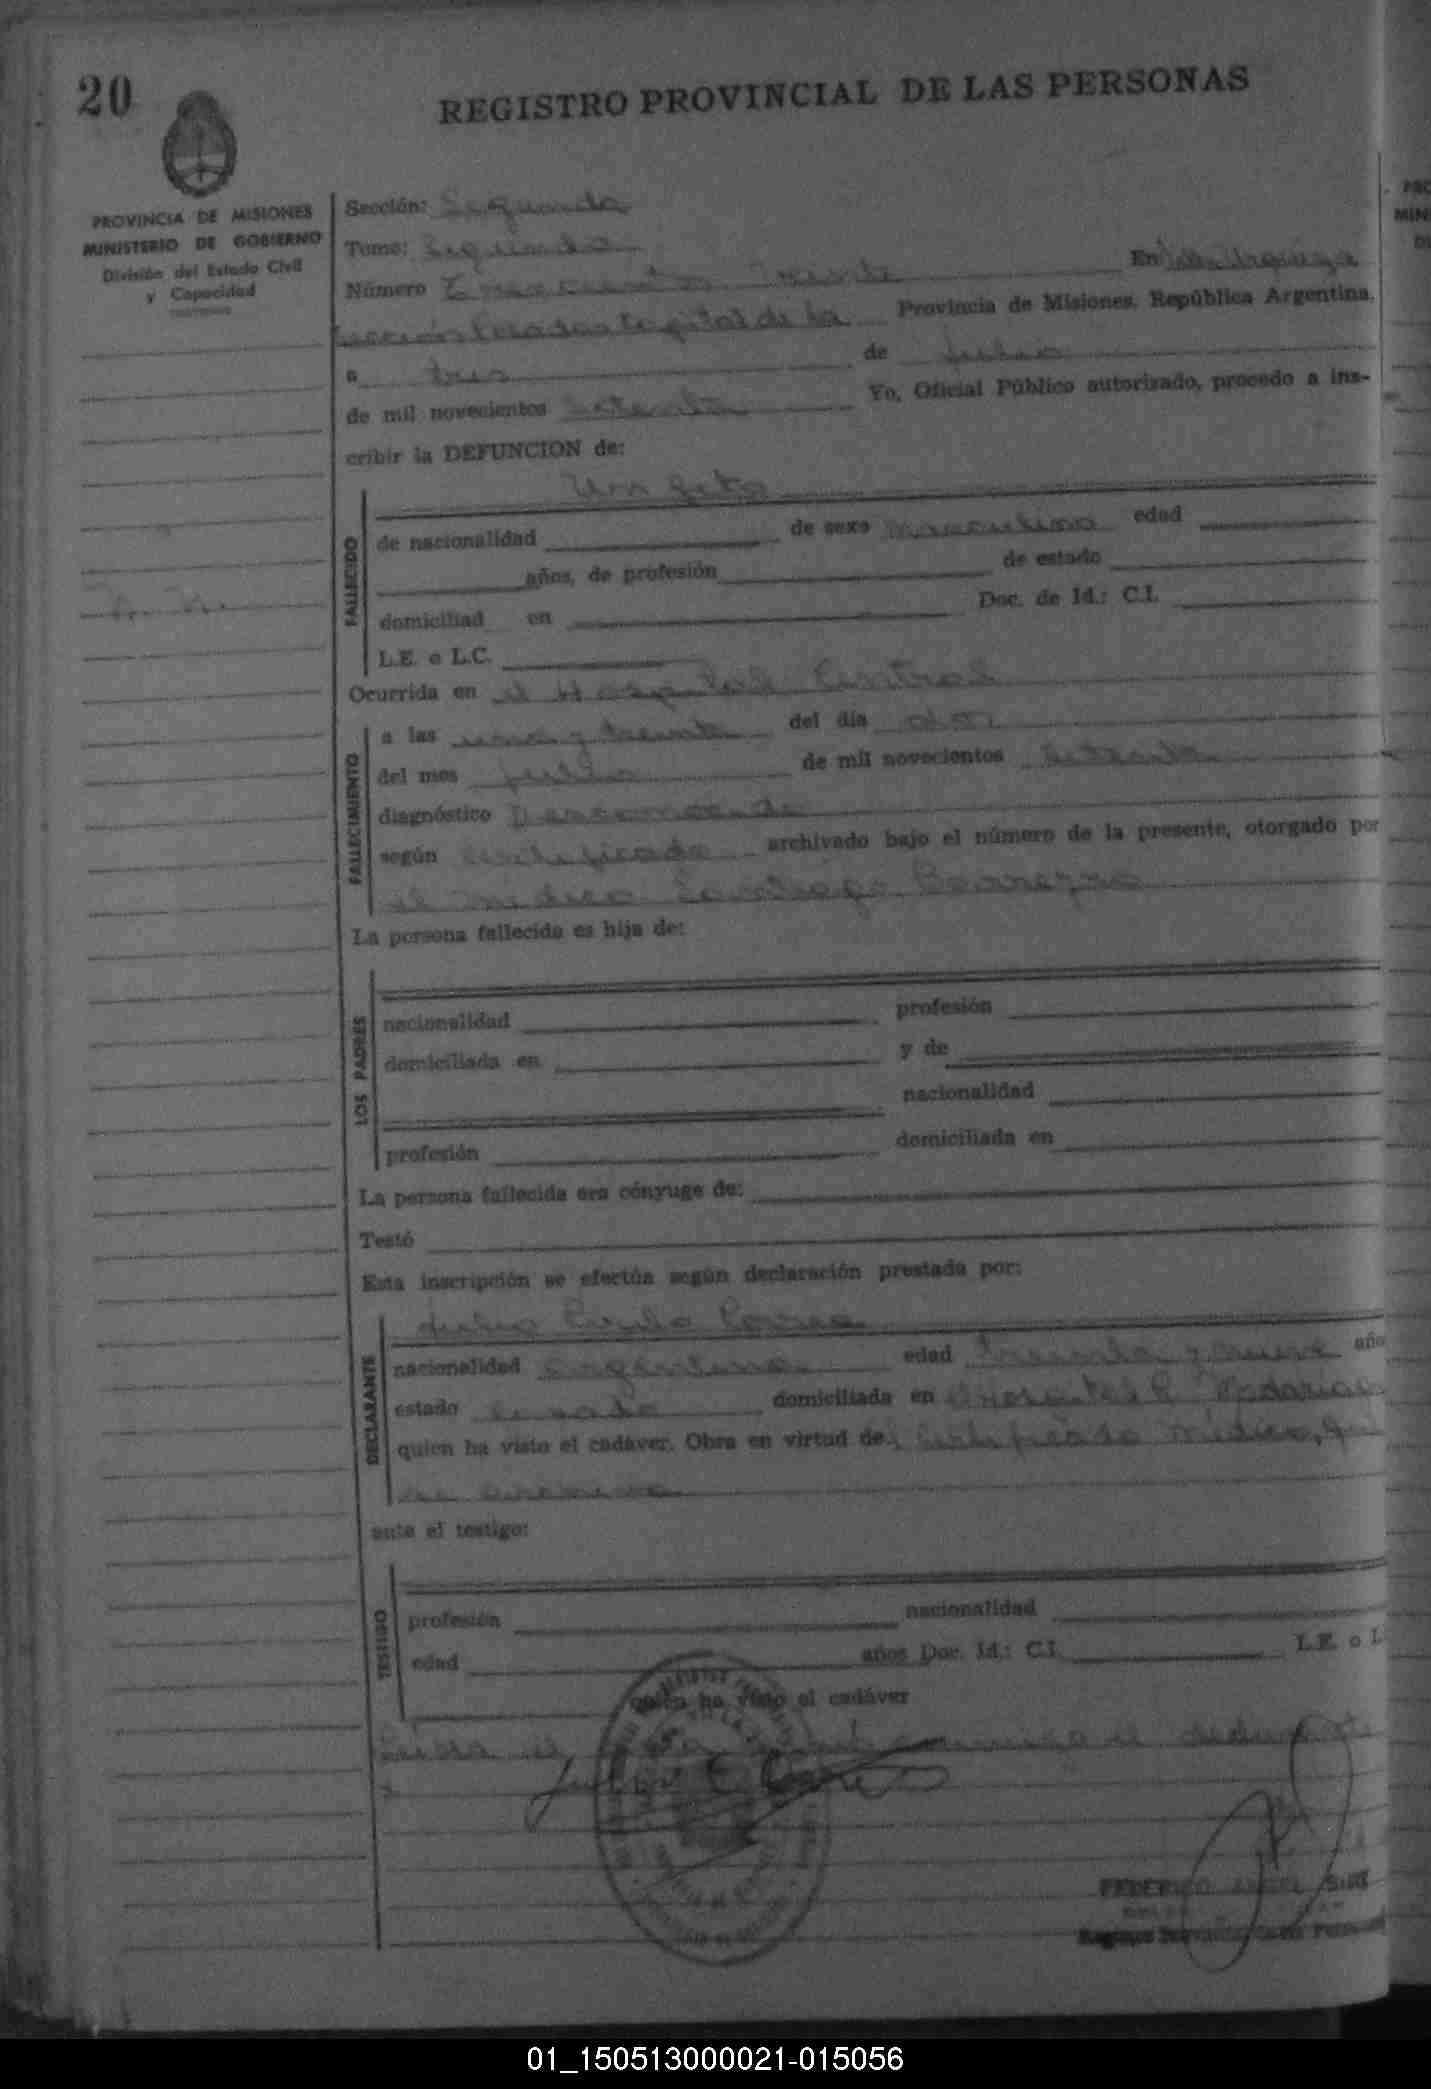 20
REGISTRO PROVINCIAL DE LAS PERSONAS
PROVINCIA DE MISIONES
MINISTERIO DE GOBIERNO
División del Estado Civil
y Capacidad
Sección: Segunda
Tomo: Segundo
Número Trescientos Treinta En Villa Urquiza
sección Posadas Capital de la Provincia de Misiones, República Argentina,
a tres de julio
de mil novecientos setenta Yo, Oficial Público autorizado, procedo a ins-
cribir la DEFUNCION de:
Un feto
FALLECIDO
de nacionalidad de sexo masculino edad
años, de profesión de estado
domiciliad en Doc. de Id.: C.I.
L.E. o L.C.
N. N.
Ocurrida en el Hospital Central
FALLECIMIENTO
a las una y treinta del día dos
del mes julio de mil novecientos setenta
diagnóstico Desconocido
según certificado archivado bajo el número de la presente, otorgado por
el médico Santiago
La persona fallecida es hija de:
LOS PADRES
nacionalidad profesión
domiciliada en y de
nacionalidad
profesión domiciliada en
La persona fallecida era cónyuge de:
Testó
Esta inscripción se efectúa según declaración prestada por:
DECLARANTE
Julio
nacionalidad argentina edad treinta y nueve año
estado casado domiciliada en
quien ha visto el cadáver. Obra en virtud de certificado médico, que
se archiva
ante el testigo:
TESTIGO
profesión nacionalidad
edad años Doc. Id.: C.I. L.E. o L
quien ha visto el cadáver
Leída el acta conmigo el declarante
FEDERICO ANGEL
01_150513000021-015056